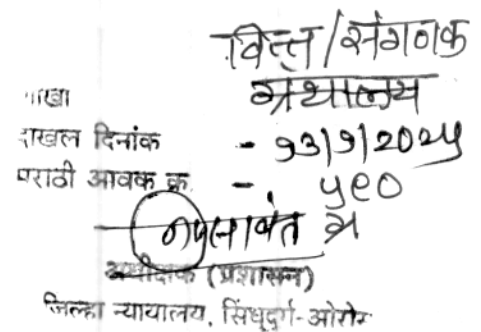 वित्त/संगणक
ग्रंथालय
शाखा
दाखल दिनांक - १३/१/२०२५
मराठी आवक क्र. - ५९०
अधीक्षक (प्रशासन)
जिल्हा न्यायालय, सिंधुदुर्ग-ओरोस